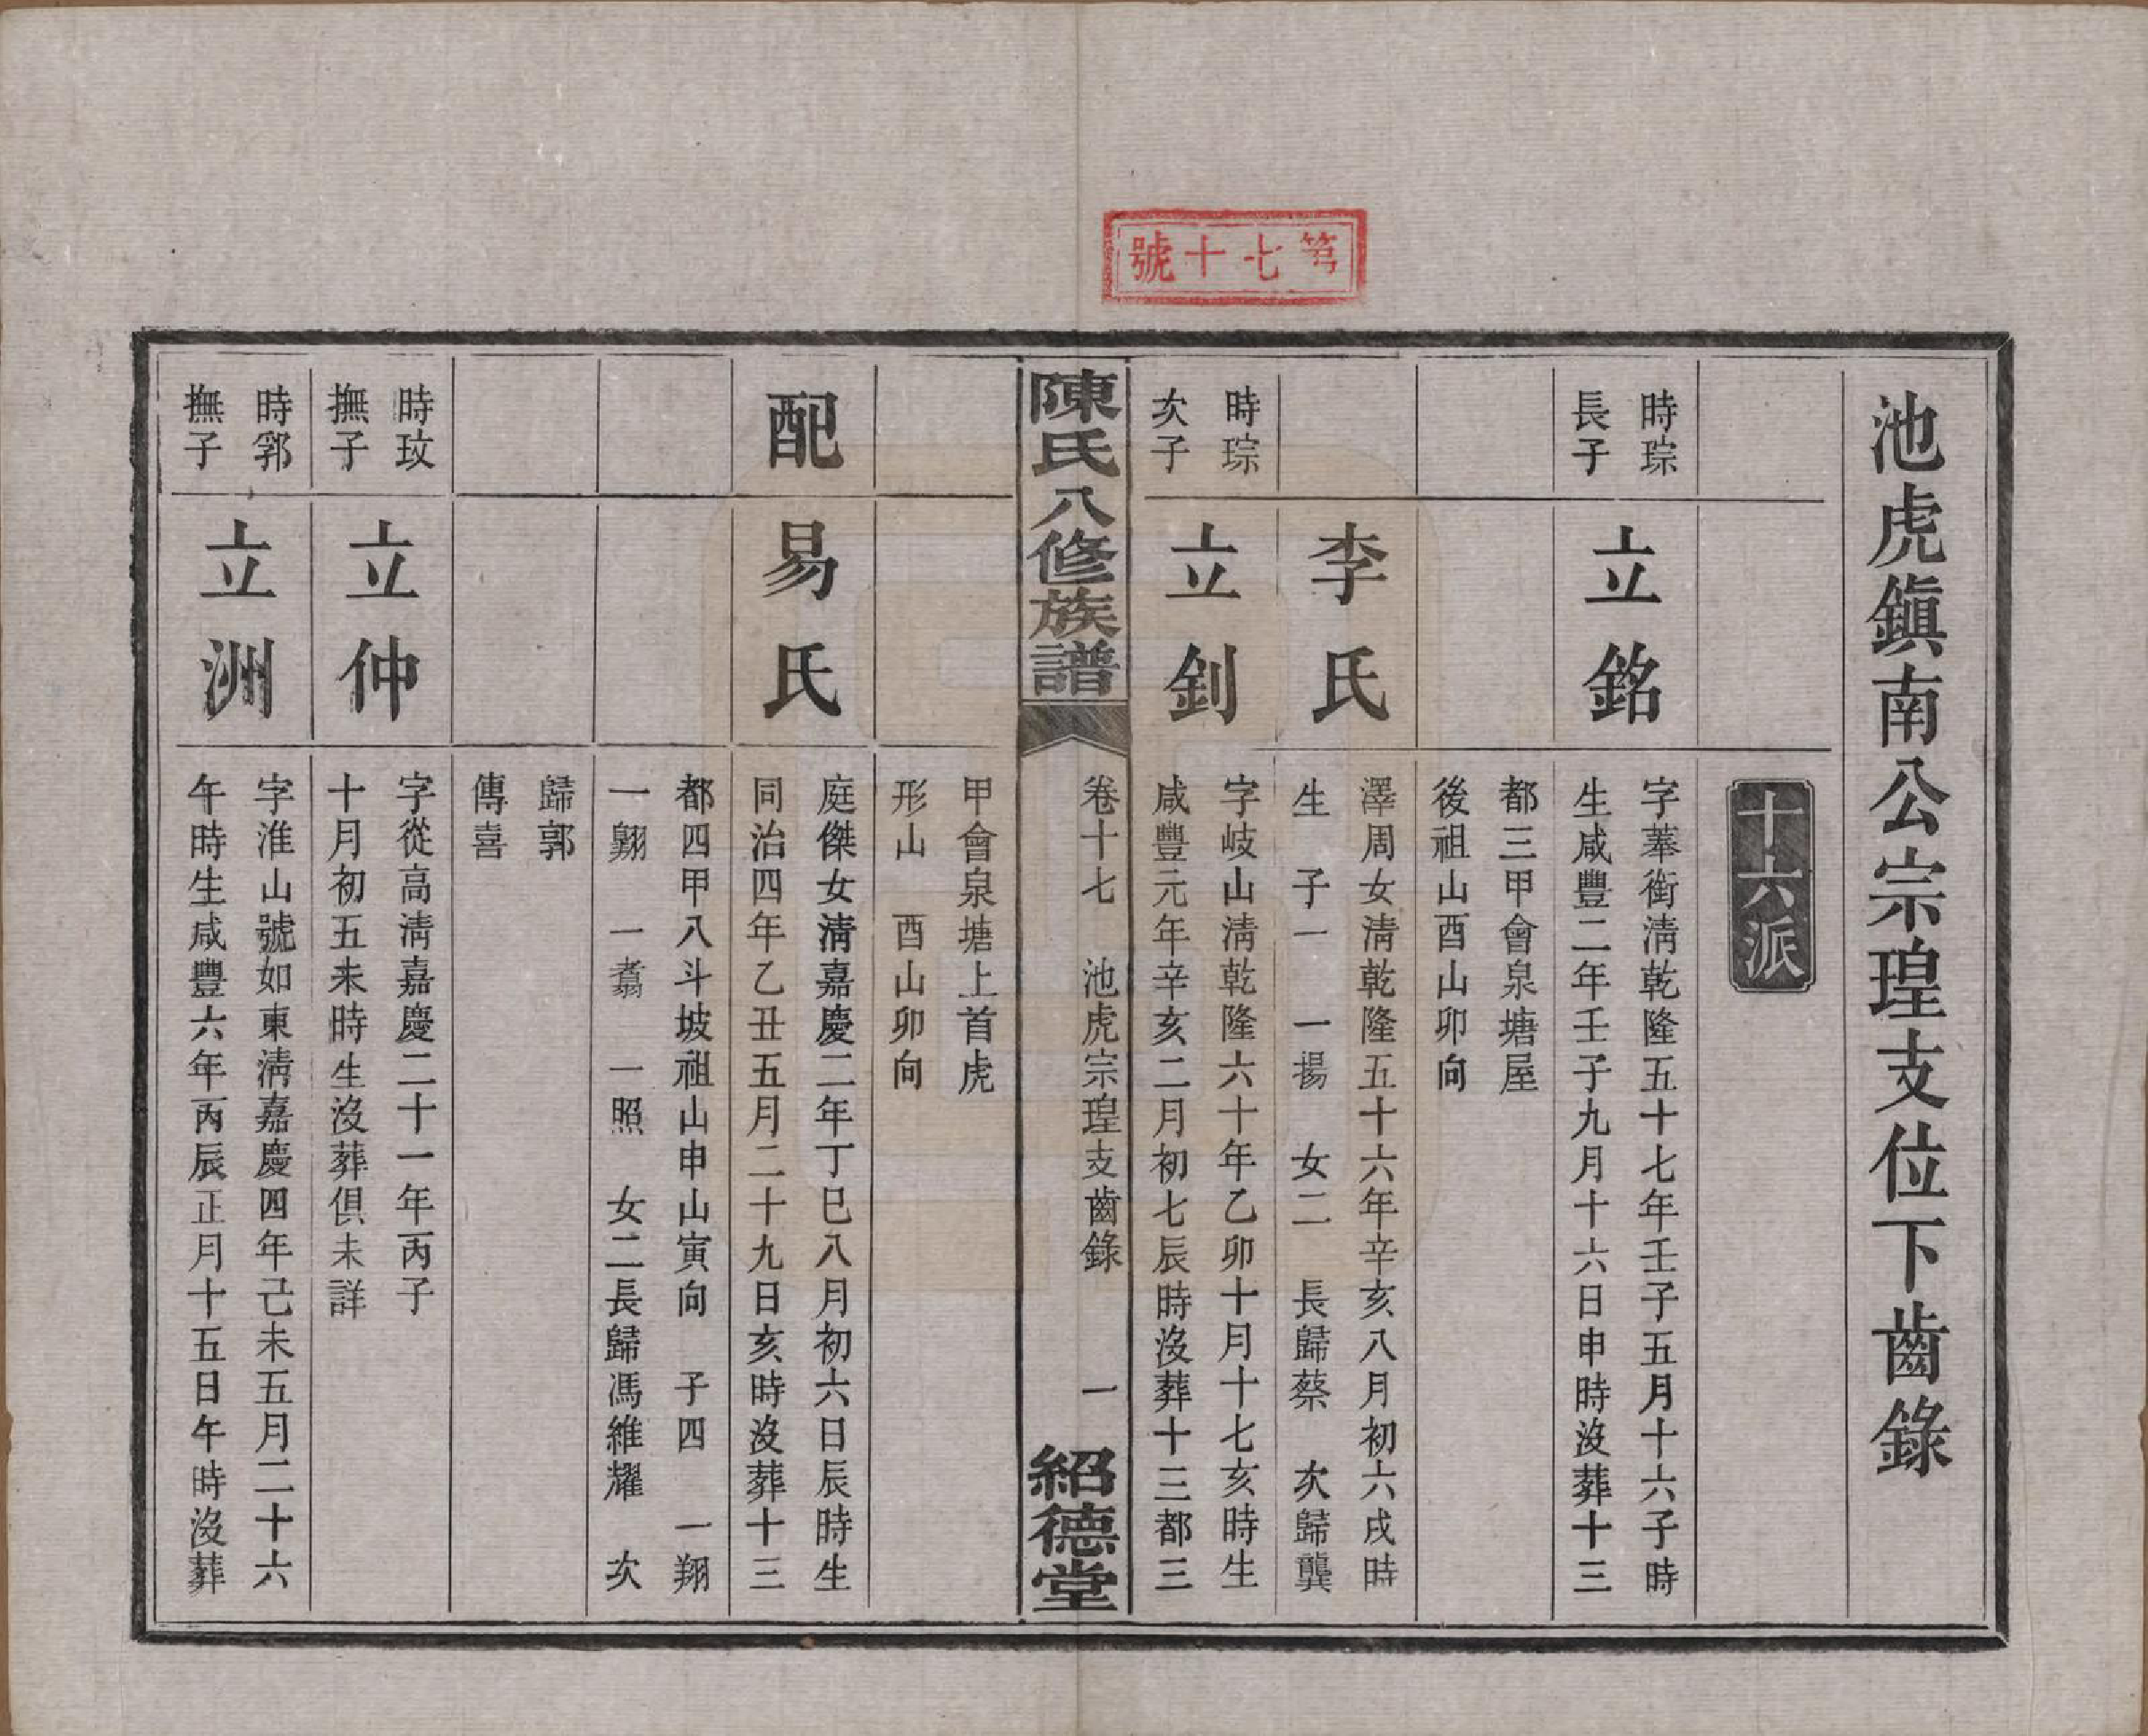 第七十號
池虎鎭南公宗瑝支位下齒錄
十六派
時琮
長子
立銘
字葊銜淸乾隆五十七年壬子五月十六子時
生咸豐二年壬子九月十六日申時沒葬十三
都三甲會泉塘屋
後祖山酉山卯向
李氏
澤周女淸乾隆五十六年辛亥八月初六戌時
生 子一 一揚 女二 長歸蔡 次歸龔
時琮
次子
立釗
字岐山淸乾隆六十年乙卯十月十七亥時生
咸豐元年辛亥二月初七辰時沒葬十三都三
陳氏八修族譜
卷十七 池虎宗瑝支齒錄 一
紹德堂
甲會泉塘上首虎
形山 酉山卯向
配
易氏
庭傑女淸嘉慶二年丁巳八月初六日辰時生
同治四年乙丑五月二十九日亥時沒葬十三
都四甲八斗坡祖山申山寅向 子四 一翔
一翺 一翥 一照 女二長歸馮維耀 次
歸郭
傳喜
時玟
撫子
立仲
字從高淸嘉慶二十一年丙子
十月初五未時生沒葬俱未詳
時郛
撫子
立洲
字淮山號如東淸嘉慶四年己未五月二十六
午時生咸豐六年丙辰正月十五日午時沒葬